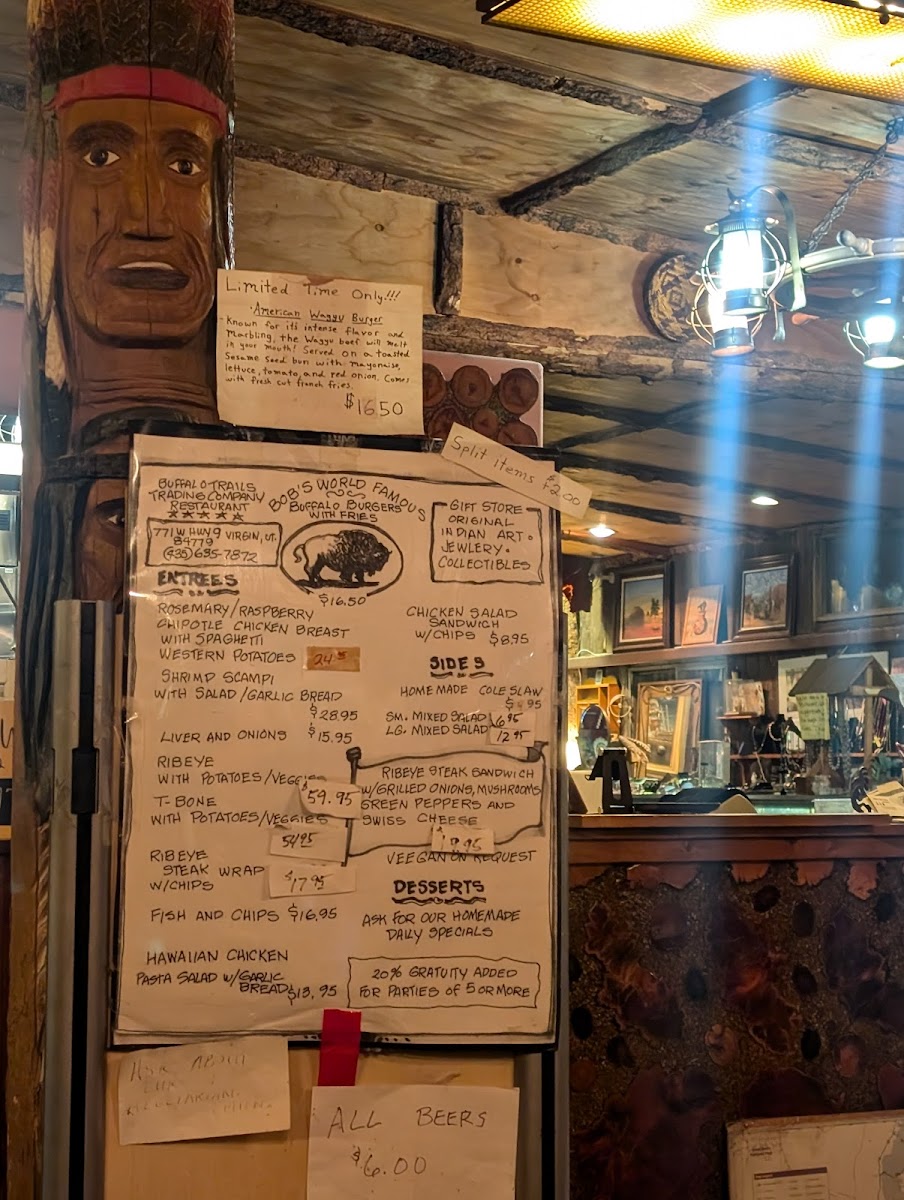 Limited Time Only!!!
·American Waggu Burger
-Known for its intense flavor and
Marbling, the Waggu beef will melt
in your mouth! Served on a toasted
Sesame Seed bun with mayonaise,
lettuce, tomato, and red onion. Comes
with fresh cut french fries.
$16.50
Split items $2.00
BUFFALO TRAILS
TRADING COMPANY
RESTAURANT
771 W HWY 9 VIRGIN, UT.
84779
(435) 635-7872
BOB'S WORLD FAMOUS
BUFFALO BURGERS
WITH FRIES
$16.50
GIFT STORE
ORIGINAL
INDIAN ART •
JEWLERY •
COLLECTIBLES
ENTREES
ROSEMARY/RASPBERRY
CHIPOTLE CHICKEN BREAST
WITH SPAGHETTI
WESTERN POTATOES
SHRIMP SCAMPI
WITH SALAD/GARLIC BREAD
$28.95
LIVER AND ONIONS $15.95
RIBEYE
WITH POTATOES/VEGGIES
$59.95
T-BONE
WITH POTATOES/VEGGIES
54.95
RIBEYE
STEAK WRAP
W/CHIPS
$17.95
FISH AND CHIPS $16.95
HAWAIIAN CHICKEN
PASTA SALAD W/GARLIC
BREAD $13.95
CHICKEN SALAD
SANDWICH
W/CHIPS $8.95
SIDES
HOMEMADE COLE SLAW
SM. MIXED SALAD 6.95
LG. MIXED SALAD 12.95
RIBEYE STEAK SANDWICH
W/GRILLED ONIONS, MUSHROOMS
GREEN PEPPERS AND
SWISS CHEESE
VEEGAN ON REQUEST
DESSERTS
ASK FOR OUR HOMEMADE
DAILY SPECIALS
20% GRATUITY ADDED
FOR PARTIES OF 5 OR MORE
ASK ABOUT
ALL BEERS
$6.00